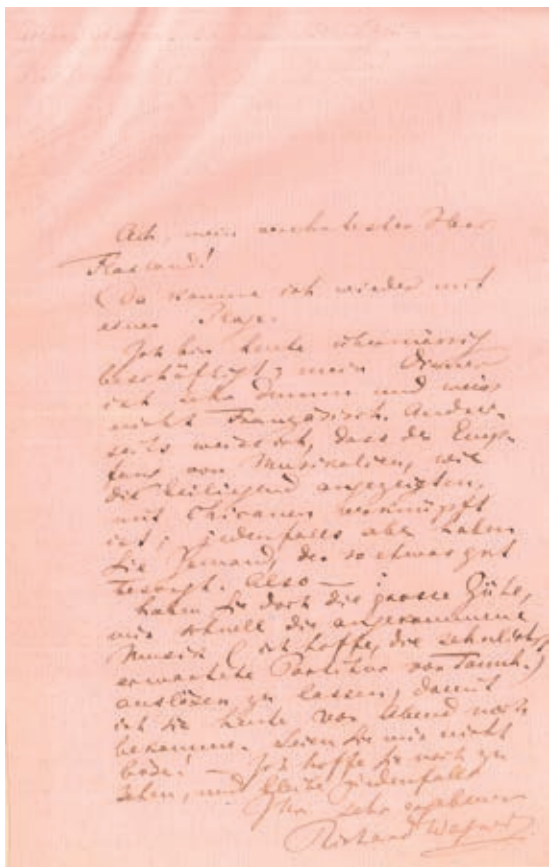 Ach, mein verehrtester Herr
Flaxland!
Da komme ich wieder mit
einer Plage.
Ich bin heute übermässig
beschäftigt; mein Diener
ist sehr dumm und weiss
nicht Französisch. Ander-
seits weiss ich, dass der Emp-
fang von Musikalien, wie
die beiliegend angezeigten,
mit Chicanen verknüpft
ist; jedenfalls aber haben
Sie Jemand, der so etwas gut
besorgt. Also — :
haben Sie doch die grosse Güte,
mir schnell die angekommene
Musik (ich hoffe, die sehnlichst
erwartete Partitur von Tannh.)
auslösen zu lassen, damit
ich sie heute vor Abend noch
bekomme. Seien Sie mir nicht
böse! Ich hoffe Sie noch zu
sehen, und bleibe jedenfalls
Ihr sehr ergebener
Richard Wagner